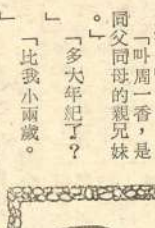 「叫周一香，是
同父同母的親兄妹
。」
「多大年紀了？
」
「比我小兩歲。